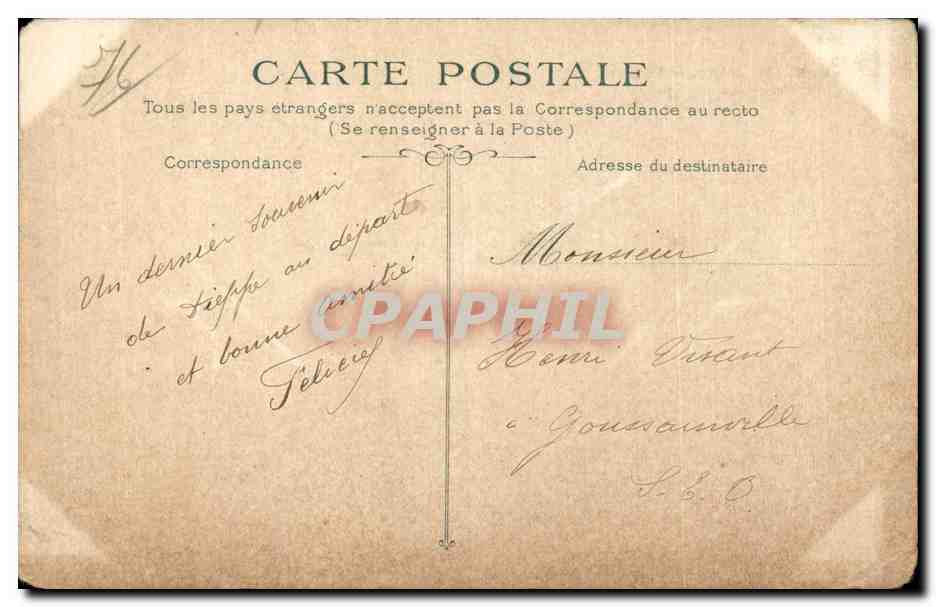 76
CARTE POSTALE
Tous les pays étrangers n'acceptent pas la Correspondance au recto
(Se renseigner à la Poste)
Correspondance
Un dernier Souvenir
de Dieppe au départ
et bonne amitié
Adresse du destinataire
Monsieur
Henri Visant
à Goussainville
S. E. O
CPAPHIL